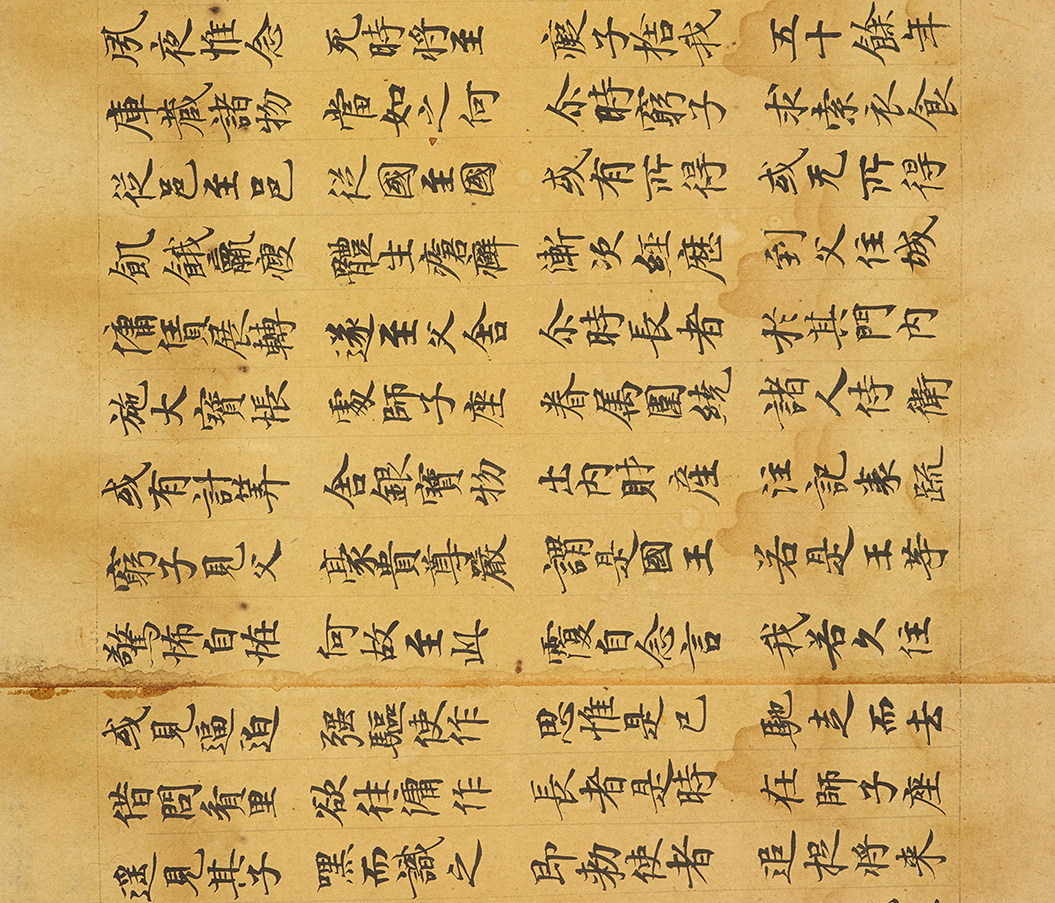 夙夜惟念 死時将至 癡子捨我 五十餘年
庫藏諸物 當如之何 尒時窮子 求索衣食
従邑至邑 従國至國 或有所得 或无所得
飢餓羸瘦 體生瘡癬 漸次經歷 到父住城
傭賃展轉 遂至父舍 尒時長者 於其門内
施大寶帳 處師子座 眷属圍繞 諸人侍衛
或有計筭 金銀寶物 出内財產 注記券疏
窮子見父 豪貴尊嚴 謂是國王 若是王等
驚怖自恠 何故至此 覆自念言 我若久住
或見逼迫 强驅使作 思惟是已 馳走而去
借問貧里 欲往傭作 長者是時 在師子座
遥見其子 嘿而識之 即勑使者 追捉将来